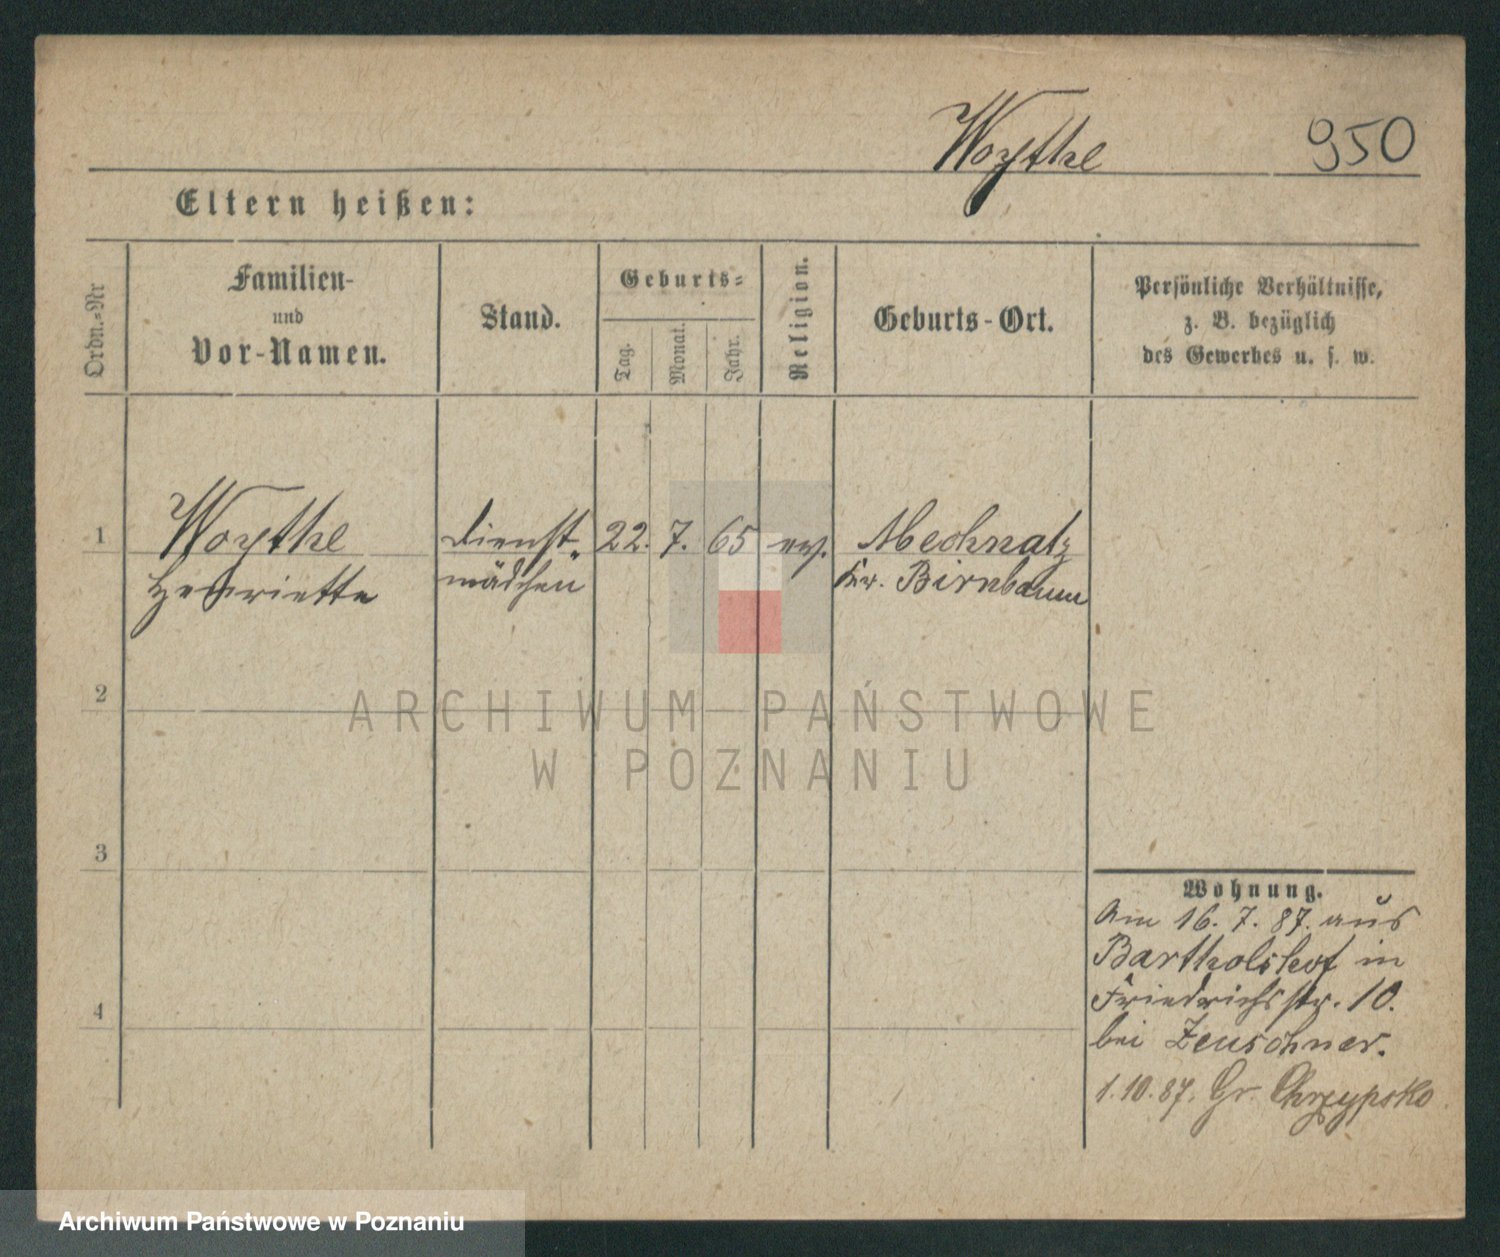 Woythe 950
Eltern heißen:
Ordn.-Nr
Familien-
und
Vor-Namen.
Stand.
Geburts-
Tag.
Monat.
Jahr.
Religion.
Geburts-Ort.
Persönliche Verhältnisse,
z. B. bezüglich
des Gewerbes u. s. w.
1 Woythe Dienst- 22. 7. 65 ev. Mechnatz
Henriette mädchen Kr. Birnbaum
2
3
4
Wohnung.
Am 16. 7. 87. aus
Bartholshof in
Friedrichsstr. 10.
bei Zeuschner.
1.10.87. Gr. Chrzypsko
ARCHIWUM PAŃSTWOWE
W POZNANIU
Archiwum Państwowe w Poznaniu